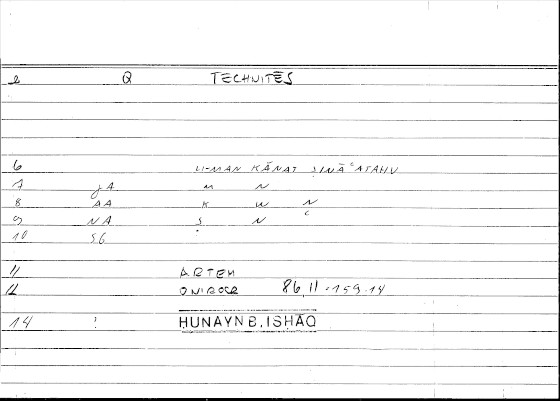 e Q TECHNITĒS
6 LI-MAN KĀNAT ṢINĀʿATAHU
7 jA M N
8 AA K W N
9 NA Ṣ N ʿ
10 SG
11 ARTEM
12 86,11-159.14
14 : HUNAYN B. ISHĀQ